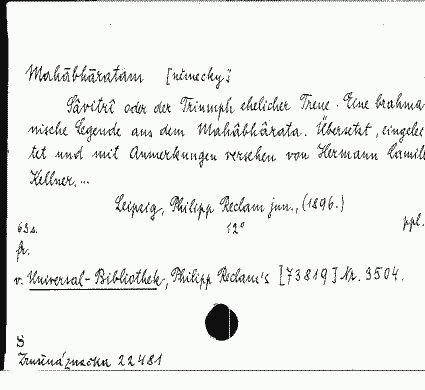 Mahâbhâratam [německy]
Sâvitrî oder der Triumph ehelicher Treue. Eine brahma
nische Legende aus dem Mahâbhârata. Übersetzt, eingelei
tet und mit Anmerkungen versehen von Hermann Camill
Kellner. ...
Leipzig, Philipp Reclam jun., (1896.)
63 s. 12° ppl.
fr.
v. Universal-Bibliothek, Philipp Reclam's [73819] Nr. 3504.
S
Zrušená značka 22481